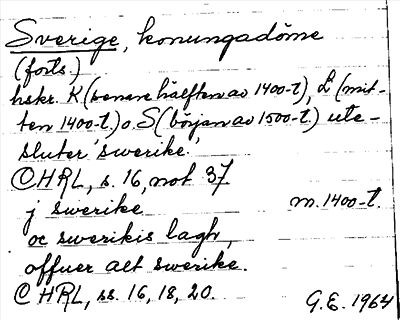 Sverige, konungadöme
(forts.)
hskr. K (senare hälften av 1400-t), L (mit-
ten 1400-t.) o S (början av 1500-t) ute-
sluter 'swerike.'
CHRL, s. 16, not 37
j swerike m. 1400-t.
oc swerikis lagh,
offuer alt swerike.
CHRL, ss. 16, 18, 20. G.E. 1964